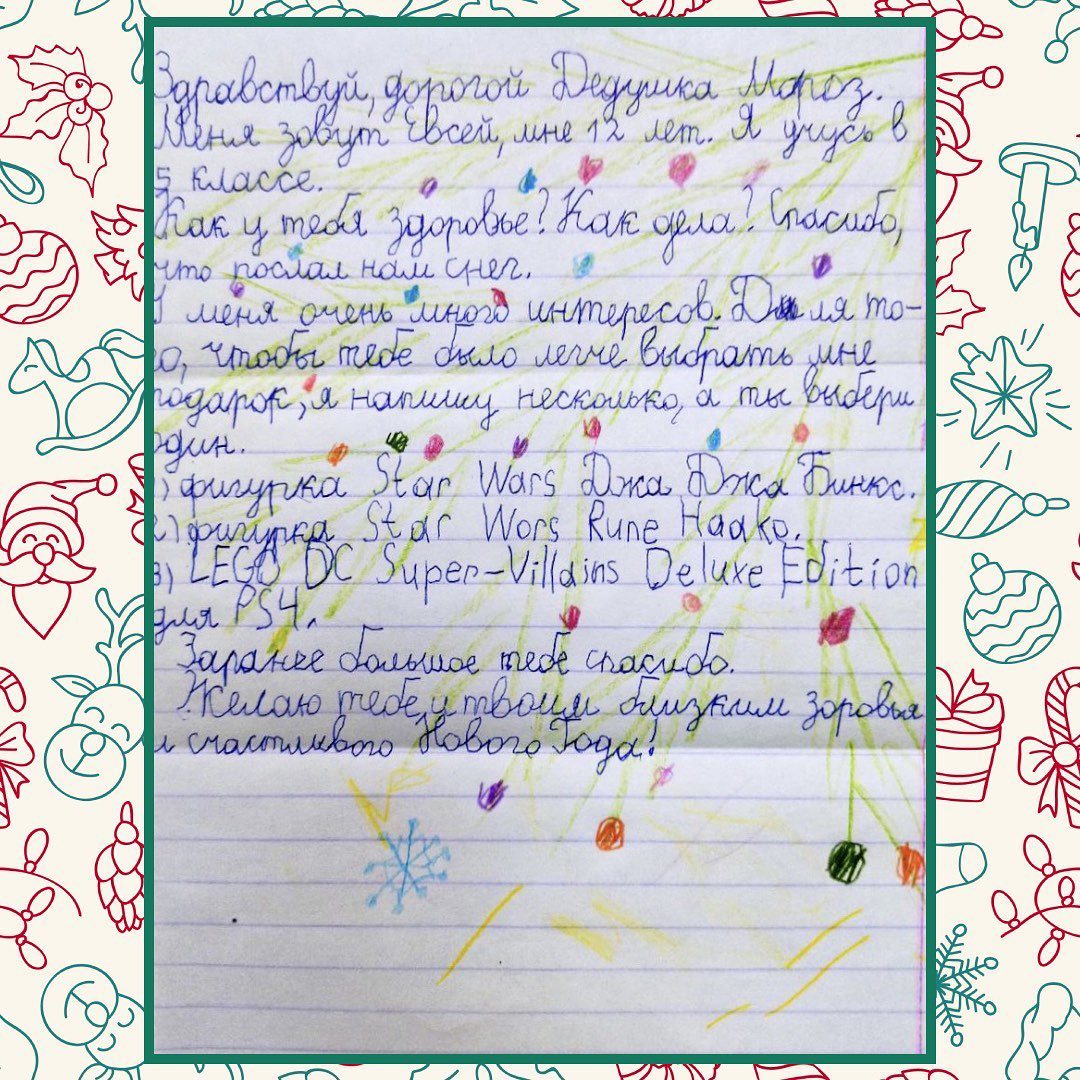 Здравствуй, дорогой Дедушка Мороз.
Меня зовут Евсей, мне 12 лет. Я учусь в
5 классе.
Как у тебя здоровье? Как дела? Спасибо,
что послал нам снег.
У меня очень много интересов. Для то-
го, чтобы тебе было легче выбрать мне
подарок, я напишу несколько, а ты выбери
один.
1) фигурка Star Wars Джа Джа Бинкс.
2) фигурка Star Wors Rune Haako.
3) LEGO DC Super-Villains Deluxe Edition
для PS4.
Заранее большое тебе спасибо.
Желаю тебе и твоим близким зоровья
и счастливого Нового Года!